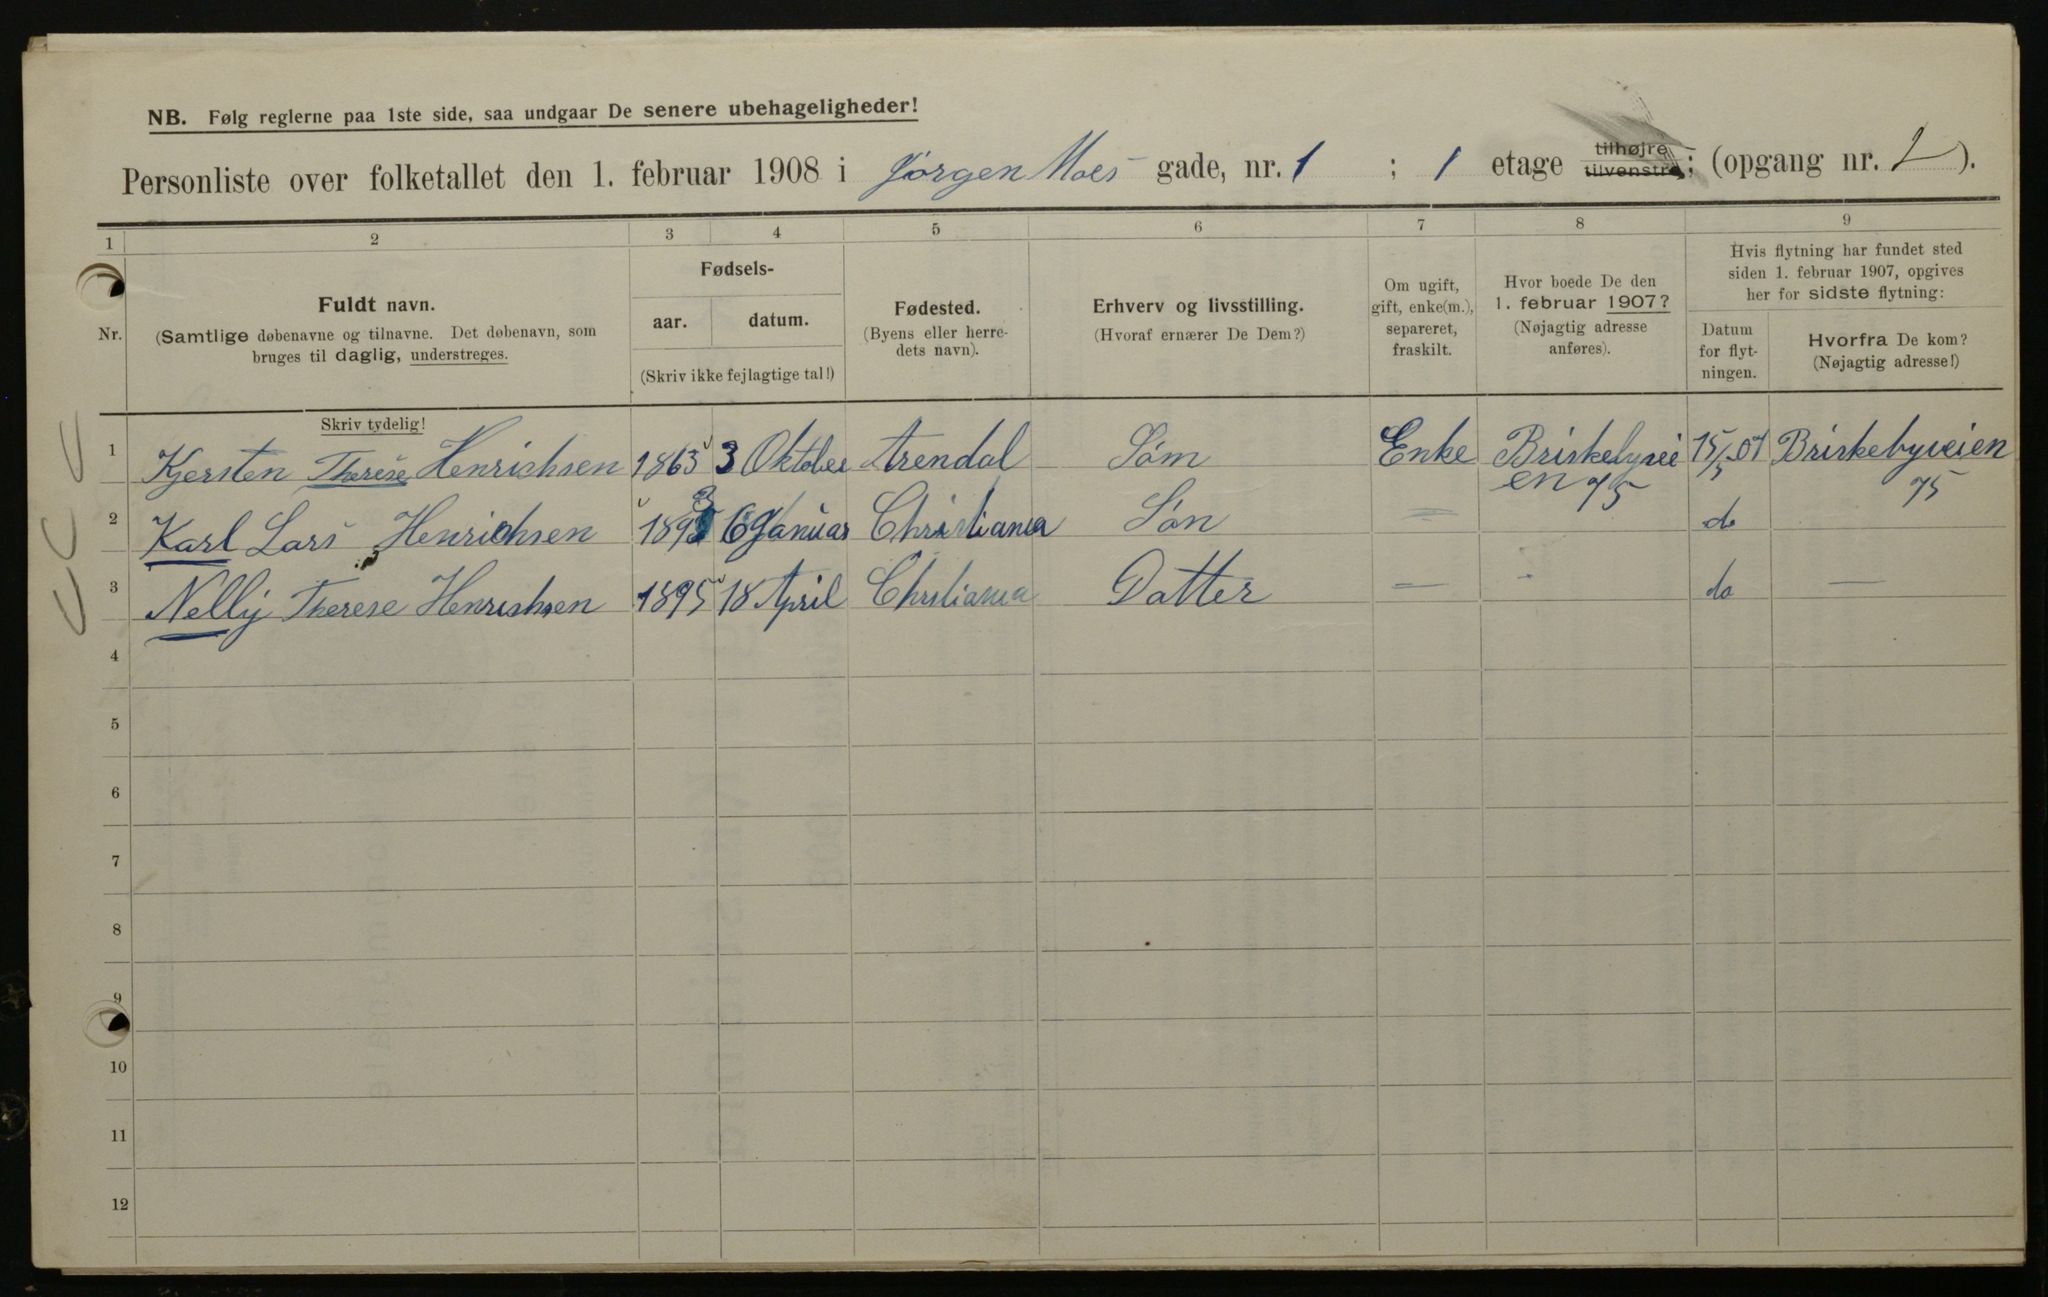 NB. Følg reglerne paa 1ste side, saa undgaar De senere ubehageligheder!
Personliste over folketallet den 1. februar 1908 i Jørgen Moes gade, nr. 1 ; 1 etage tilhøjre tilvenstre; (opgang nr. 2).
1 2 3 4 5 6 7 8 9
Nr.
Fuldt navn.
(Samtlige døbenavne og tilnavne. Det døbenavn, som
bruges til daglig, understreges.
Skriv tydelig!
Fødsels-
aar. datum.
(Skriv ikke fejlagtige tal!)
Fødested.
(Byens eller herre-
dets navn).
Erhverv og livsstilling.
(Hvoraf ernærer De Dem?)
Om ugift,
gift, enke(m.),
separeret,
fraskilt.
Hvor boede De den
1. februar 1907?
(Nøjagtig adresse
anføres).
Hvis flytning har fundet sted
siden 1. februar 1907, opgives
her for sidste flytning:
Datum
for flyt-
ningen.
Hvorfra De kom?
(Nøjagtig adresse!)
1 Kjersten Therese Henrichsen 1863 3 Oktober Arendal Søm Enke Briskebyvei 15/5-07 Briskebyveien
en 75 75
2 Karl Lars Henrichsen 1893 6 Januar Christiania Søn — do
3 Nelly Therese Henrichsen 1895 18 April Christiania Datter — - do —
4
5
6
7
8
9
10
11
12